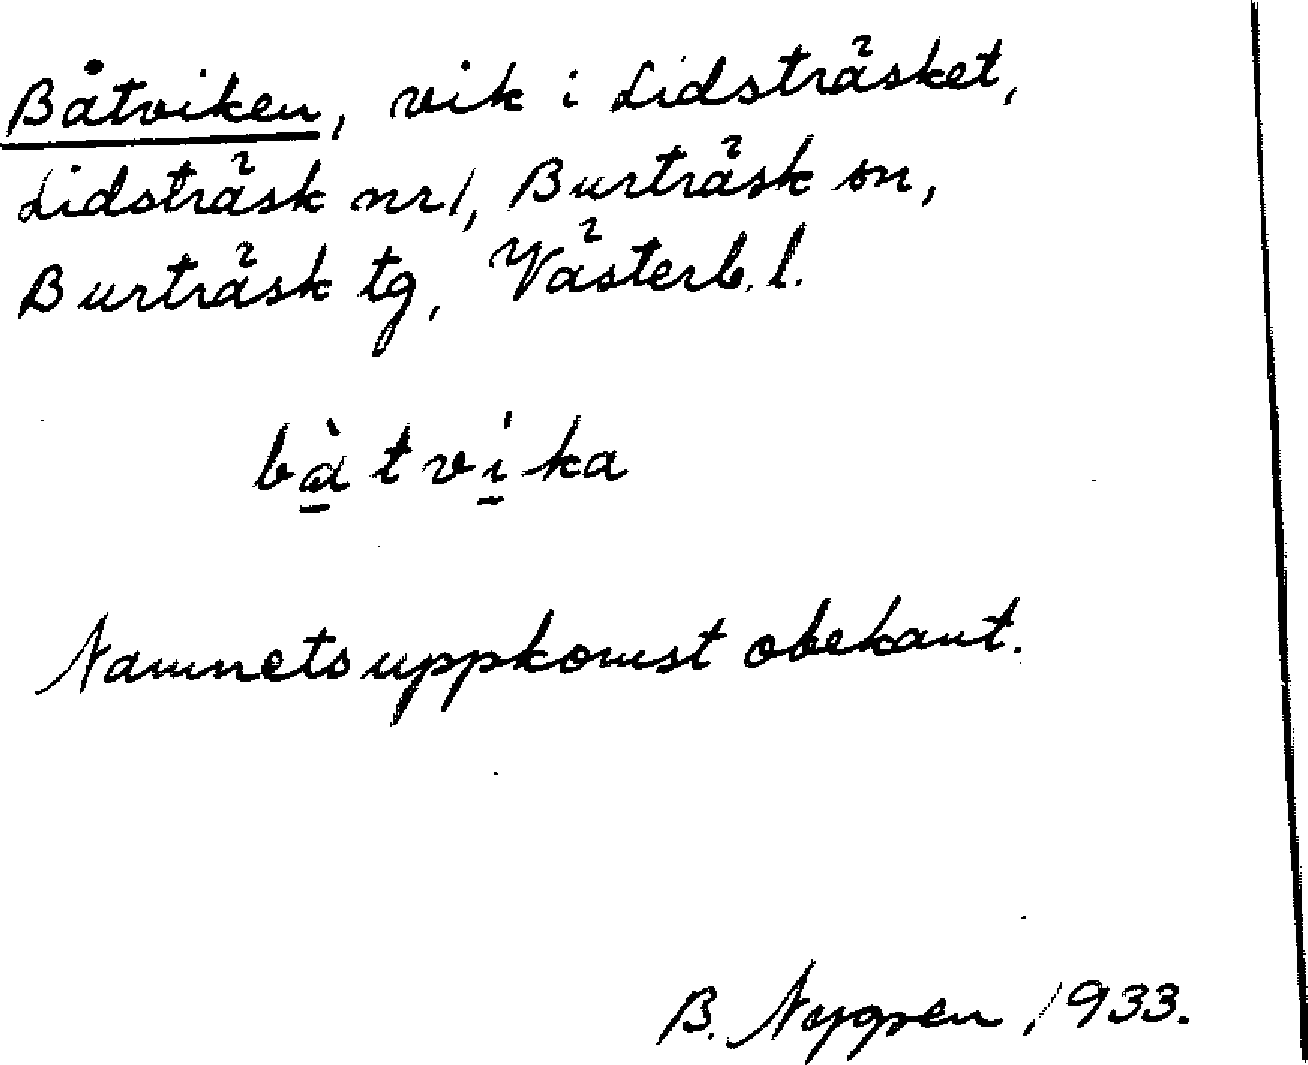 Båtviken, vik i Lidsträsket,
Lidsträsk nr 1, Burträsk sn,
Burträsk tg, Västerb. l.
bà̱tvi̱ka
Namnets uppkomst obekant.
B. Nygren 1933.